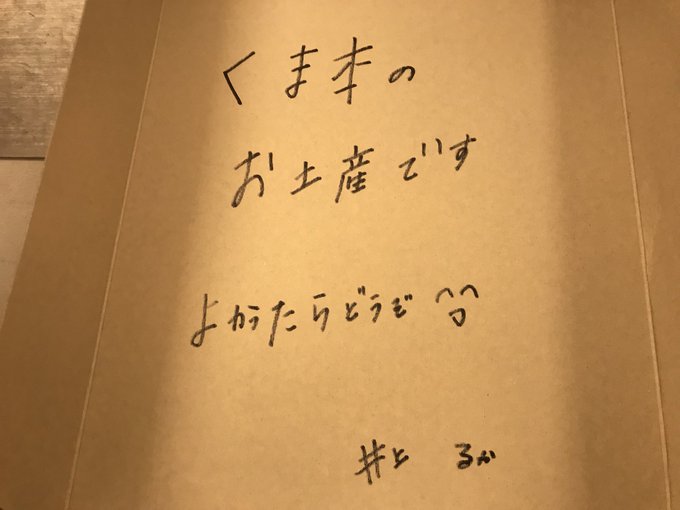 くま本の
お土産です
よかたらどうぞ ^^
井上 るか